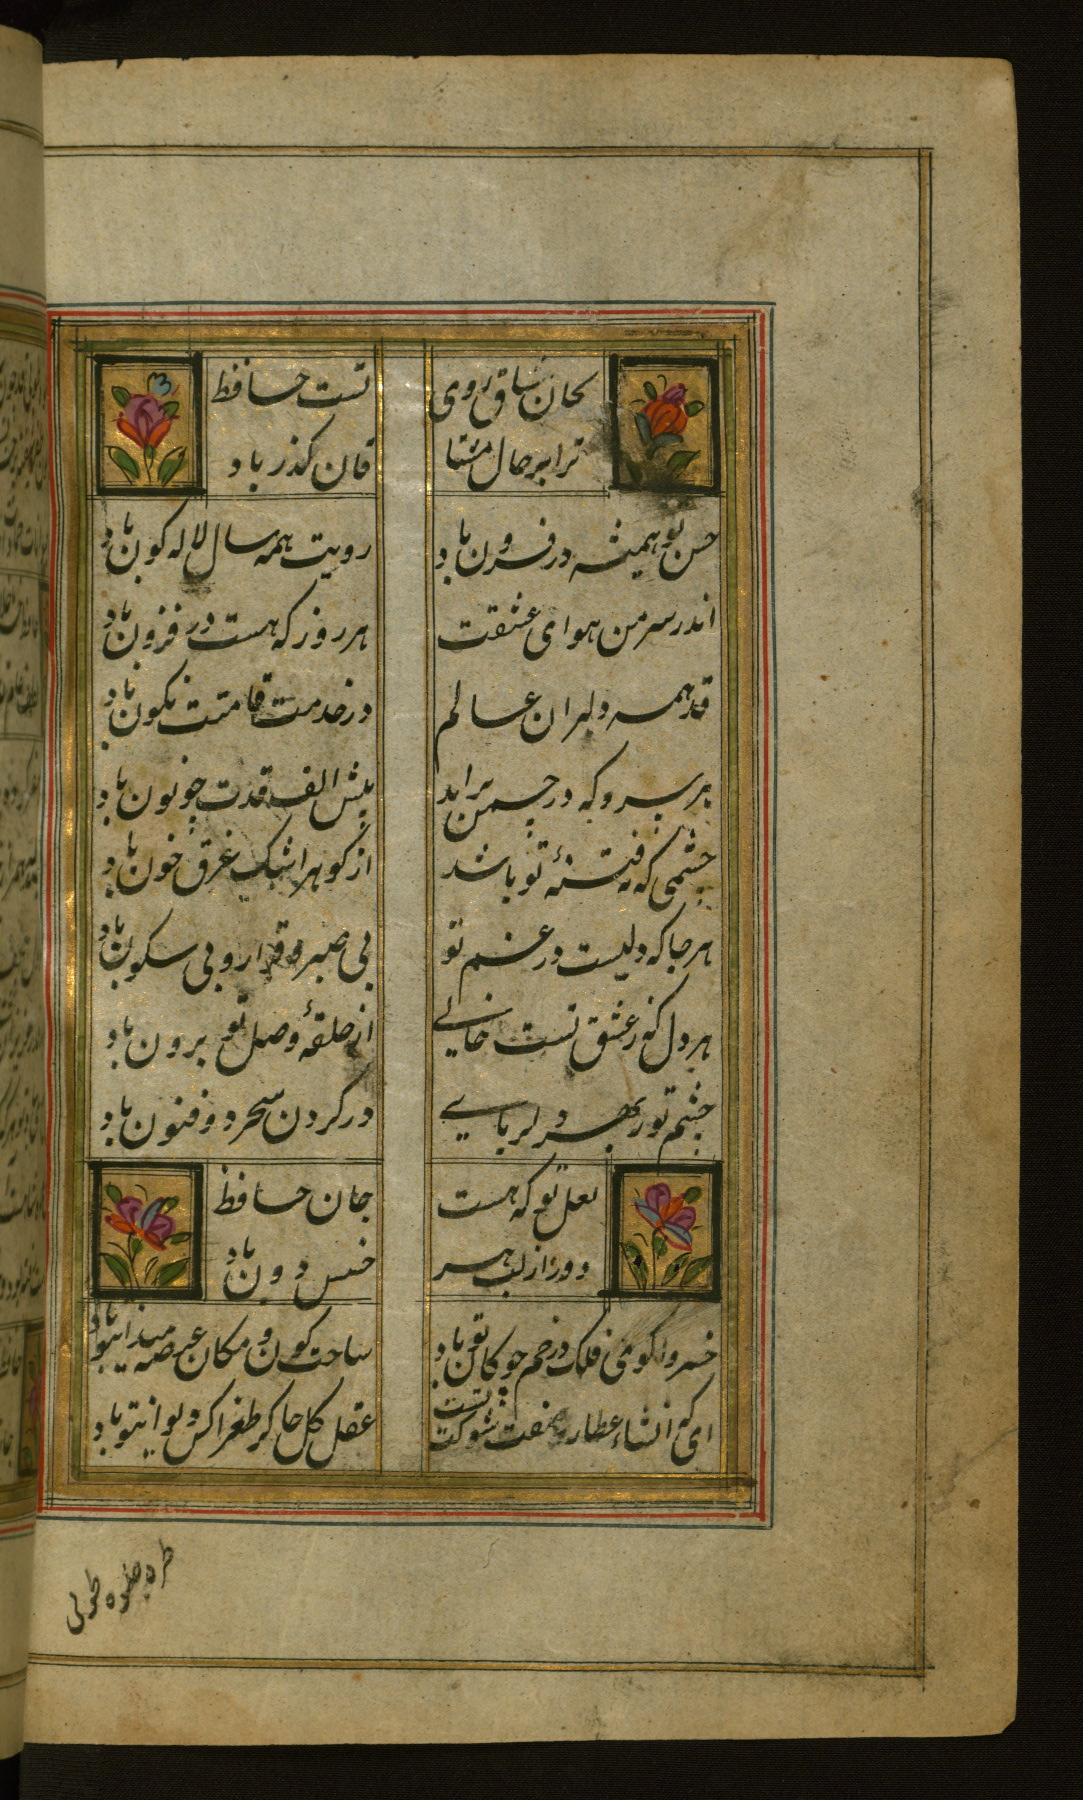 بجان مشتاق روی تست حافظ
ترا بر حال مشتا قان گذر باد
حسن تو همیشه در فزون باد رویت همه سال لاله گون باد
اندر سر من هوای عشقت هر روز که هست در فزون باد
قد همه دلبران عالم در خدمت قامتت نگون باد
هر سرو که در چمن براید پیش الف قدت چو نون باد
چشمی که نه فتنهٔ تو باشد از گوهر اشک غرق خون باد
هر جا که دلیست در غم تو بی صبر و قرار و بی سکون باد
هر دل که ز عشق تست خالی از حلقهٔ وصل تو برون باد
چشم تو ز بهر دلربایی در کردن سحر ذو فنون باد
لعل تو که هست جان حافظ
دور از لب هر خسیس دون باد
خسروا گوی فلک در خم چوگان تو باد ساحت کون و مکان عرصه میدان تو باد
ای که انشاء عطارد صفت شوکت تست عقل کل چاکر طغراکش دیوان تو باد
طره جلوه طوبی